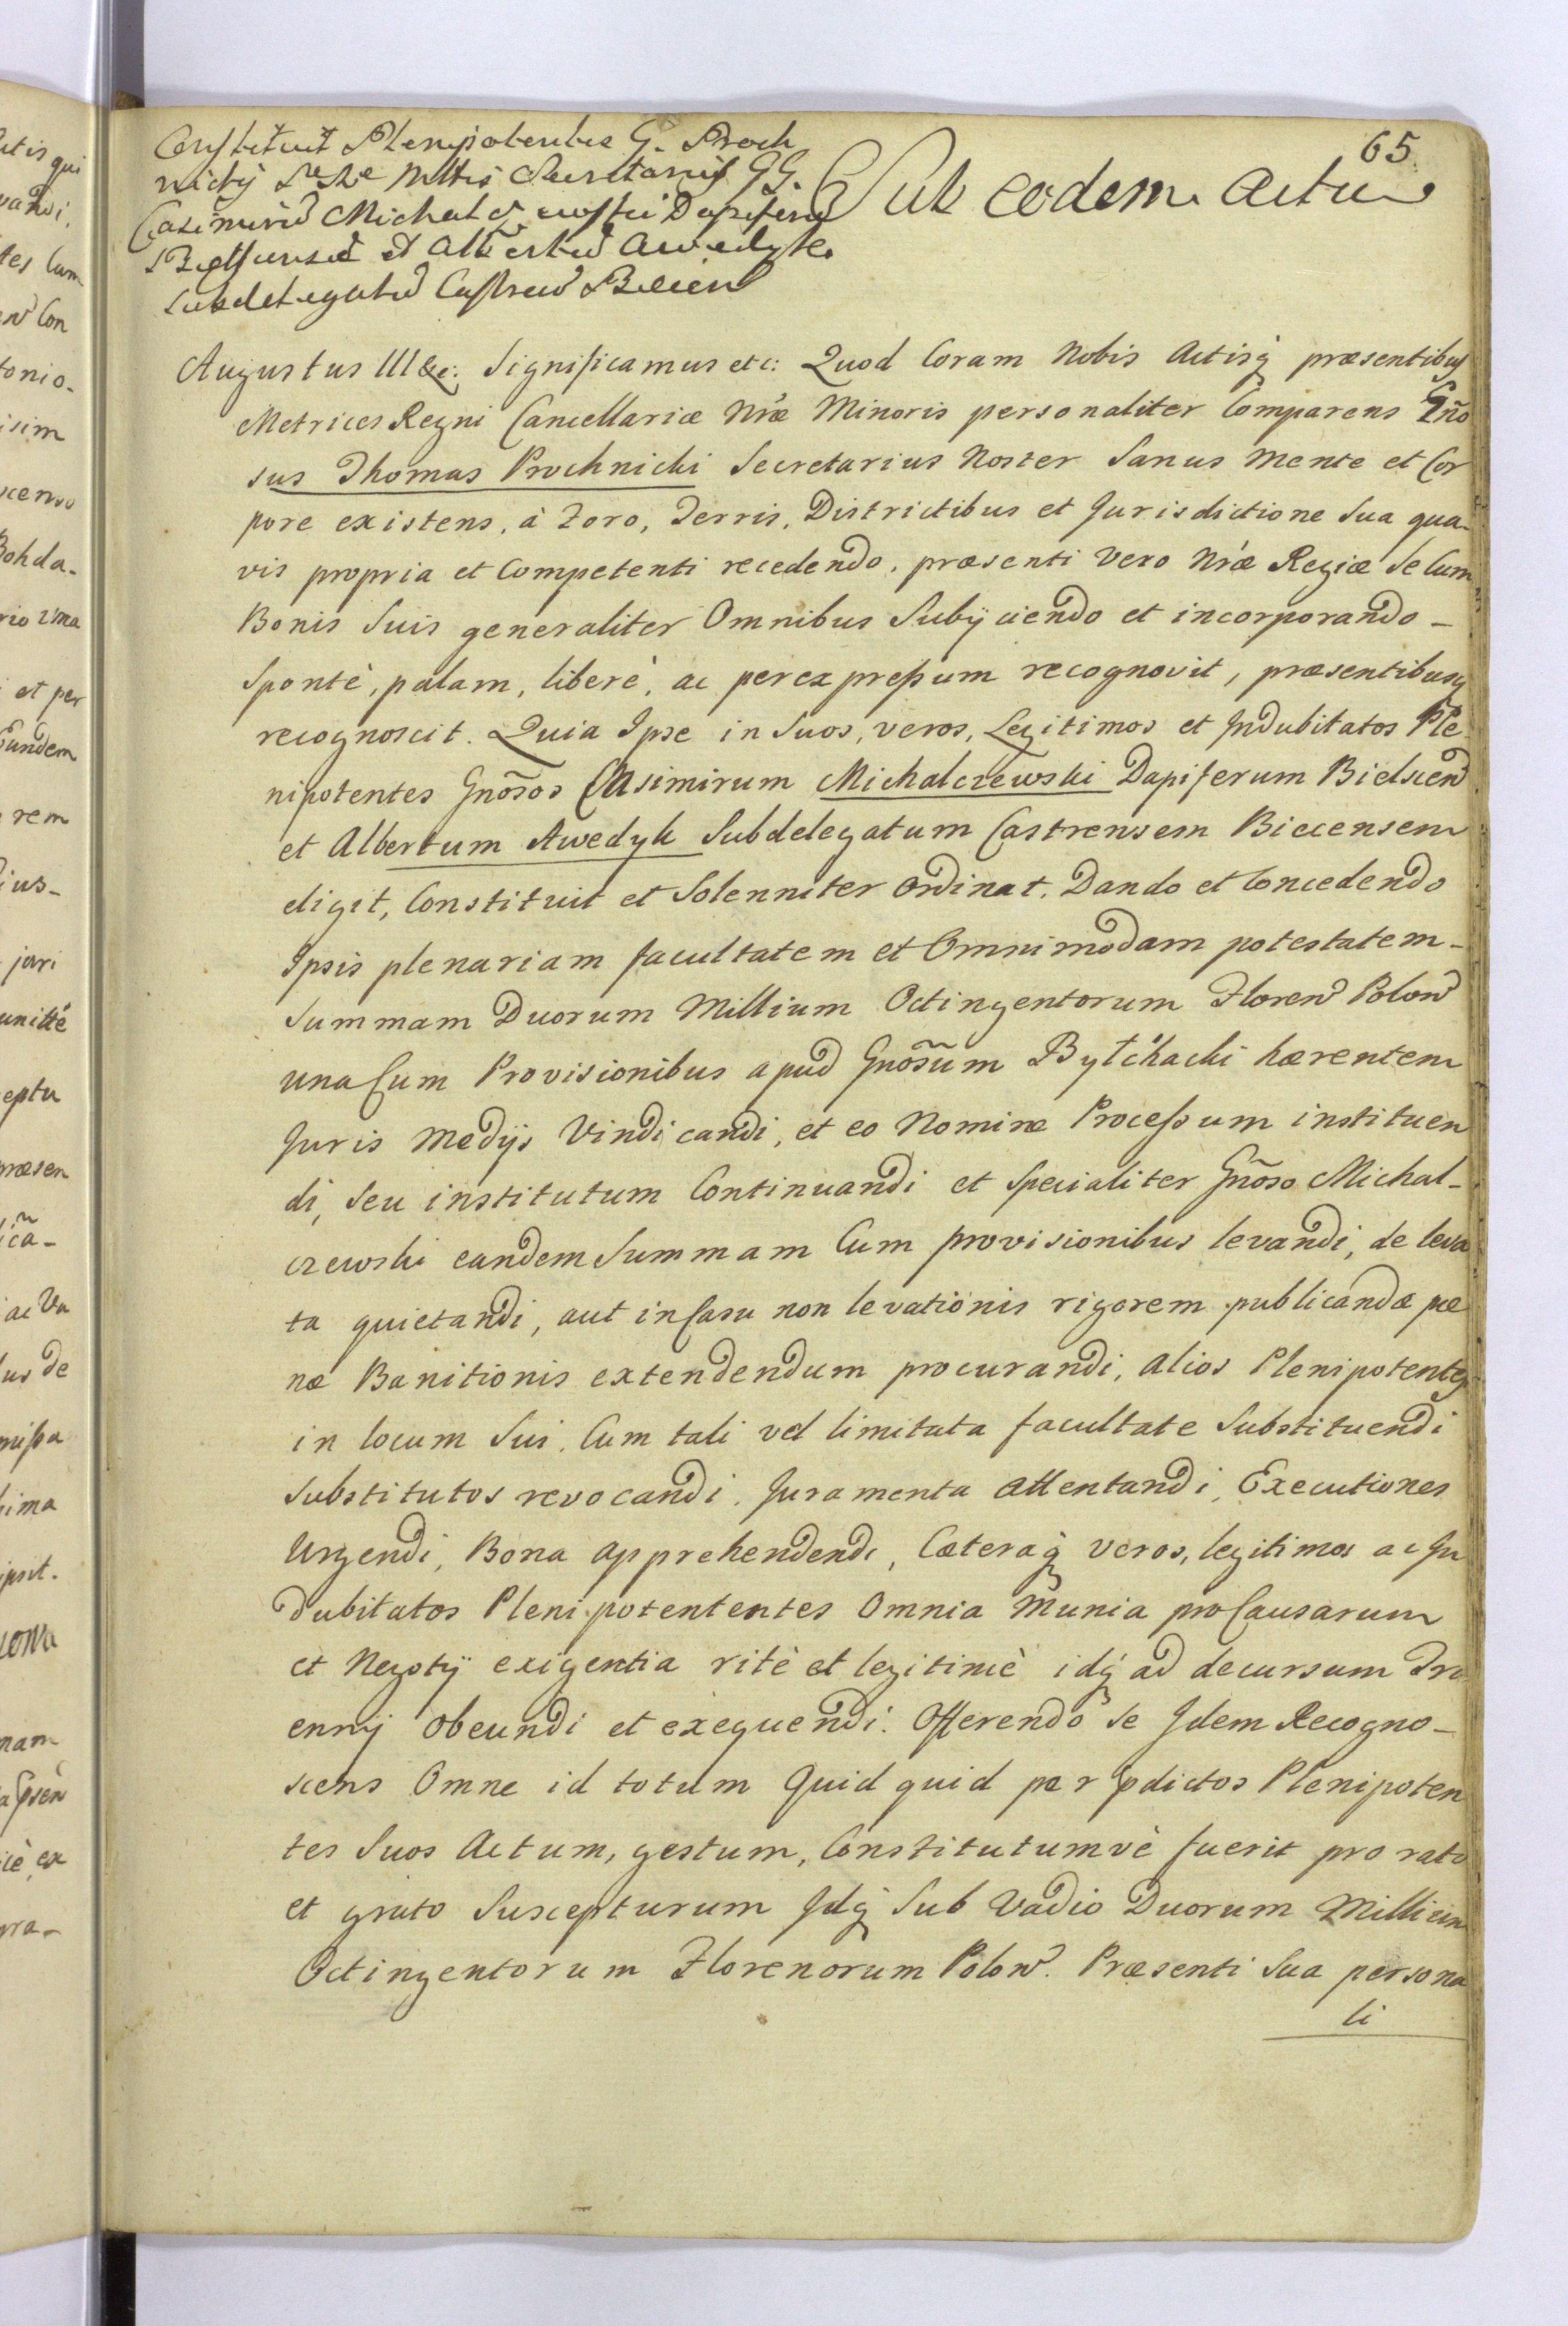 65
Constituit Plenipotentes G. Proch
nicky Sæ Ræ Mttis Secretarius GG.
Casimirū Michalczewski Dapiferū
Bielscensē et Albertū Awedyk
Subdelegatū Castreñ Bieceñ
Sub eodem Actu
Augustus III &c: Significamus etc: Quod Coram Nobis Actisq̃ præsentibus
Metrices Regni Cancellariæ Nræ Minoris personaliter Comparens Gño
sus Thomas Prochnicki Secretarius Noster Sanus mente et Cor
pore existens, à Foro, Terris, Districtibus et Jurisdictione Sua qua-
vis propria et Competenti recedendo, præsenti vero Nræ Regiæ Se Cum
Bonis Suis generaliter Omnibus Subijciendo et incorporando-
Spontè, palam, liberè, ac per expreßum recognovit, præsentibusq̃
recognoscit. Quia Ipse in Suos, veros, Legitimos et Indubitatos Ple
nipotentes Gnõsos Casimirum Michalczewski Dapiferum Bielsceñ
et Albertum Awedyk Subdelegatum Castrensem Biecensem
eligit, Constituit et Solenniter Ordinat. Dando et Concedendo
Ipsis plenariam facultatem et Omnimodam potestatem-
Summam Duorum Millium Octingentorum Floreñ Poloñ
una Cum Provisionibus apud Gnõsum Bytchacki hærentem
Juris Medijs Vindicandi, et eo Nomine Proceßum instituen
di, Seu institutum Continuandi et Specialiter Gnõso Michal-
czewski eandem Summam Cum provisionibus levandi, de leva
ta quietandi, aut in Casu non levationis rigorem publicandæ pæ
næ Banitionis extendendum procurandi, alios Plenipotentes
in locum Sui, Cum tali vel limitata facultate Substituendi
Substitutos revocandi. Juramenta attentandi, Executiones
Urgendi, Bona apprehendendi, Cæteraq̃ veros, legitimos ac In
dubitatos Plenipotententes Omnia Munia pro Causarum
et Negotij exigentia ritè et legitimè idq̃ ad decursum Tri
ennij Obeundi et exequendi. Offerendo Se Idem Recogno-
scens Omne id totum Quid quid per p̃dictos Plenipoten
tes Suos Actum, gestum, Constitutumvè fuerit pro rato
et grato Suscepturum Idq̃ Sub Vadio Duorum Millium
Octingentorum Florenorum Poloñ. Præsenti Sua persona
li